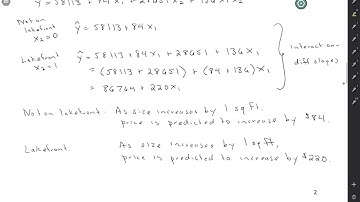 ŷ = 58113 + 84 x₁ + 28651 x₂ + 136 x₁ x₂
Not on lakefront x₂=0 ŷ = 58113 + 84 x₁
Lakefront x₂=1 ŷ = 58113 + 84 x₁ + 28651 + 136 x₁
= (58113 + 28651) + (84 + 136) x₁
= 86764 + 220 x₁
Interaction - diff slopes
Not on lakefront: As size increases by 1 sq ft, price is predicted to increase by $84.
Lakefront: As size increases by 1 sq ft, price is predicted to increase by $220.
2